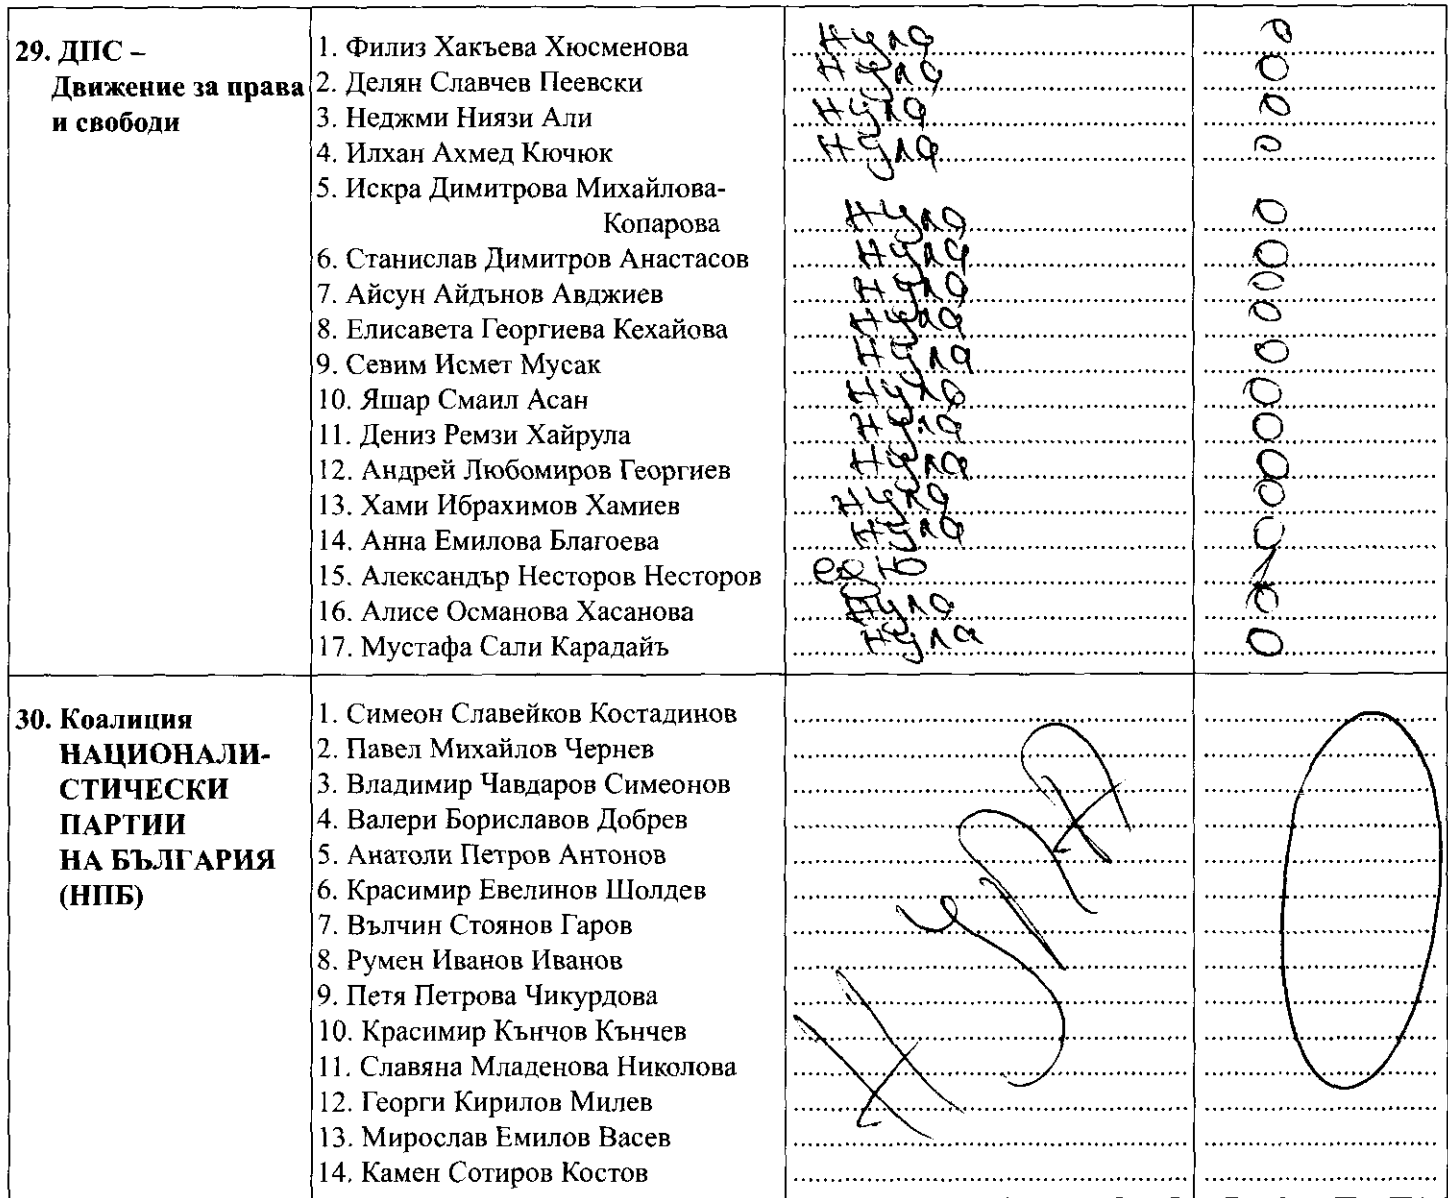 29. ДПС –
Движение за права
и свободи
1. Филиз Хакъева Хюсменова нула 0
2. Делян Славчев Пеевски нула 0
3. Неджми Ниязи Али нула 0
4. Илхан Ахмед Кючюк нула 0
5. Искра Димитрова Михайлова-
Копарова нула 0
6. Станислав Димитров Анастасов нула 0
7. Айсун Айдънов Авджиев нула 0
8. Елисавета Георгиева Кехайова нула 0
9. Севим Исмет Мусак нула 0
10. Яшар Смаил Асан нула 0
11. Дениз Ремзи Хайрула нула 0
12. Андрей Любомиров Георгиев нула 0
13. Хами Ибрахимов Хамиев нула 0
14. Анна Емилова Благоева нула 0
15. Александър Несторов Несторов 1
16. Алисе Османова Хасанова нула 0
17. Мустафа Сали Карадайъ нула 0
30. Коалиция
НАЦИОНАЛИ-
СТИЧЕСКИ
ПАРТИИ
НА БЪЛГАРИЯ
(НПБ)
1. Симеон Славейков Костадинов
2. Павел Михайлов Чернев
3. Владимир Чавдаров Симеонов
4. Валери Бориславов Добрев
5. Анатоли Петров Антонов
6. Красимир Евелинов Шолдев
7. Вълчин Стоянов Гаров
8. Румен Иванов Иванов
9. Петя Петрова Чикурдова
10. Красимир Кънчов Кънчев
11. Славяна Младенова Николова
12. Георги Кирилов Милев
13. Мирослав Емилов Васев
14. Камен Сотиров Костов
нула 0